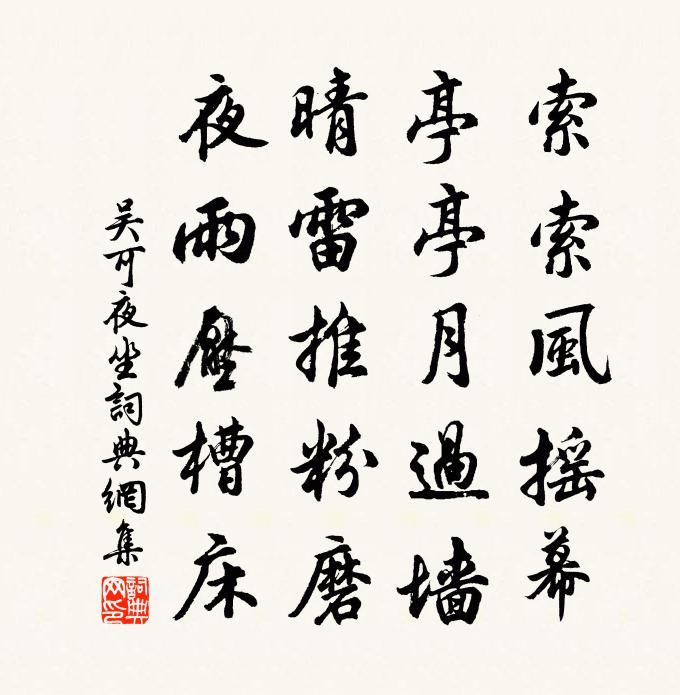 索索風搖幕
亭亭月過墻
晴雷推粉磨
夜雨壓槽床
吴可夜坐詞典網集
詞典網印